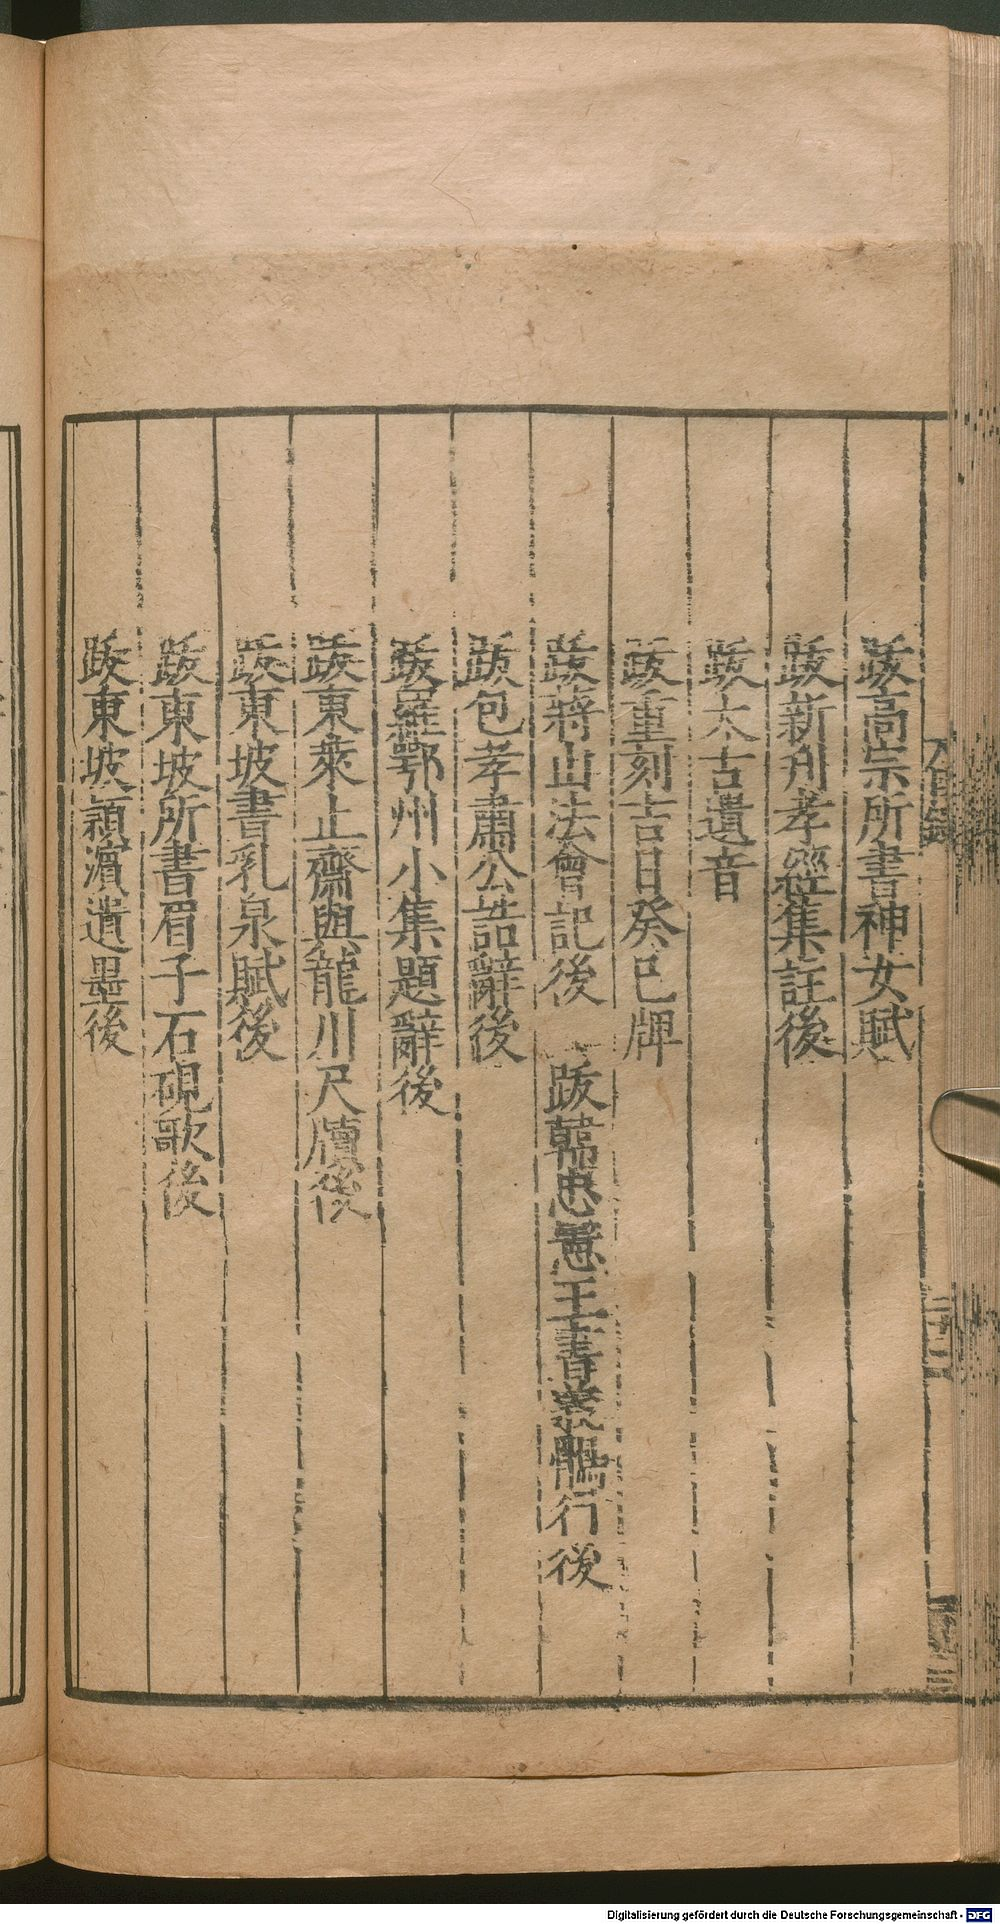 跋高宗所書神女賦
跋新刋孝經集註後
跋太古遺音
跋重刻吉日癸巳牌
跋蔣山法會記後　跋韓忠憲王書叢鵩行後
跋包孝肅公誥辭後
跋羅鄂州小集題辭後
跋東萊止齋與龍川尺牘後
跋東坡書乳泉賦後
跋東坡所書眉子石硯歌後
跋東坡潁濵遺墨後
Digitalisierung gefördert durch die Deutsche Forschungsgemeinschaft - DFG